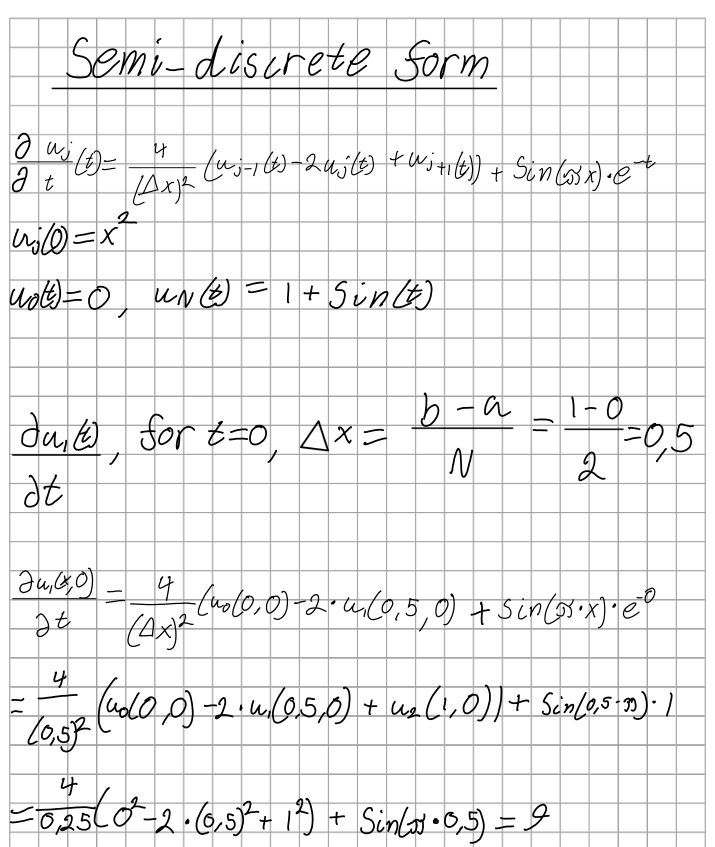 Semi-discrete form
∂ uj/∂ t (t) = 4/(Δx)² (uj-1(t) - 2uj(t) + uj+1(t)) + Sin(πx)·e^-t
uj(0) = x²
u0(t) = 0, uN(t) = 1 + Sin(t)
∂u1(t)/∂t, for t=0, Δx = b-a/N = 1-0/2 = 0,5
∂u1(x,0)/∂t = 4/(Δx)² (u0(0,0) - 2·u1(0,5,0) + Sin(π·x)·e^-0
= 4/(0,5)² (u0(0,0) - 2·u1(0,5,0) + u2(1,0)) + Sin(0,5·π)·1
= 4/0,25 (0² - 2·(0,5)² + 1²) + Sin(π·0,5) = 9